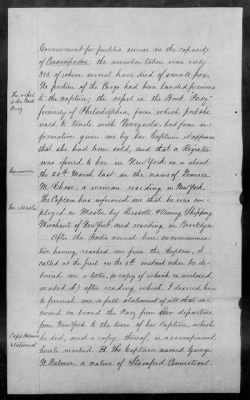 Government for public service in the capacity
of Emancipados, the number taken was only
250, of whom several have died of small pox.
No portion of the Cargo had been landed previous
to the capture; the vessel is the Bark Pacy
formerly of Philadelphia, from which port she
used to trade with Venezuela; but from in-
formation given me by her Captain it appears
that she had been sold, and that a Register
was issued to her in New York on or about
the 20th March last in the name of
M. Chase, a woman residing in New York.
The Captain has informed me that he was em-
ployed as Master by Russell Shipping
Merchants of New York and residing in Brooklyn.
After the Bark's arrival here, no communica-
tion having reached me from the Captain, I
called at the Jail on the 8th instant when he de-
livered me a letter, (a copy of which is enclosed
marked A) after reading which I desired him
to furnish me a full statement of all that oc-
curred on board the Pacy from her departure
from New York to the time of her Capture, which
he did, and a copy thereof, is accompanied
herewith marked H. The Captain named George
W. a native of Stamford Connecticut
The vessel
is the Bark
Pacy
her owner
her Master
Capt
statement